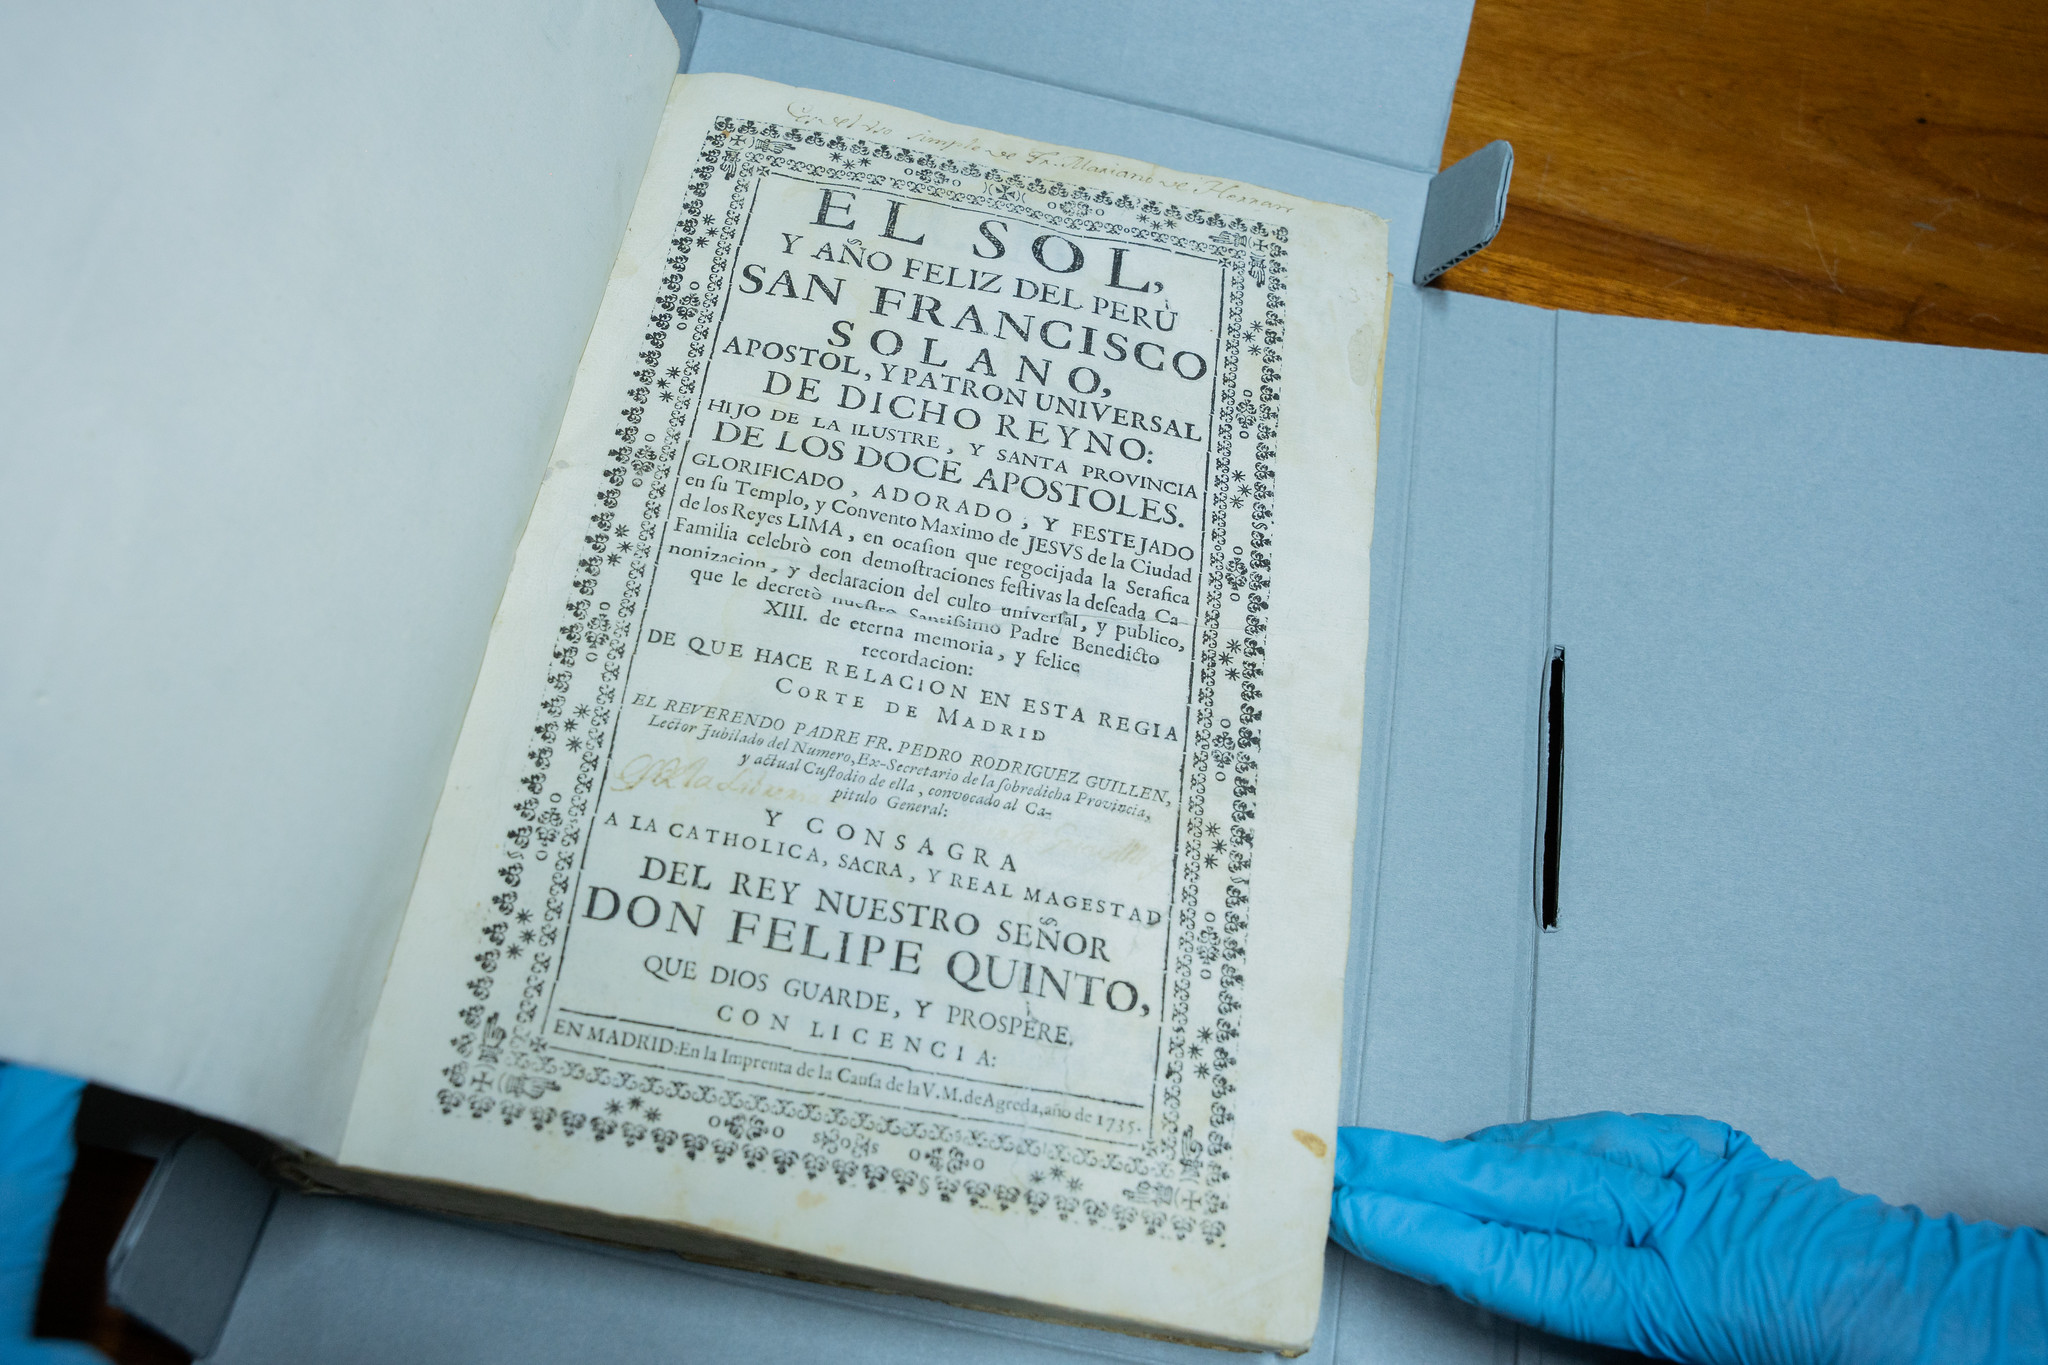 simple de Fr. Mariano de Herrari
EL SOL,
Y AÑO FELIZ DEL PERÙ
SAN FRANCISCO
SOLANO,
APOSTOL, Y PATRON UNIVERSAL
DE DICHO REYNO:
HIJO DE LA ILUSTRE, Y SANTA PROVINCIA
DE LOS DOCE APOSTOLES.
GLORIFICADO, ADORADO, Y FESTEJADO
en ſu Templo, y Convento Maximo de JESVS de la Ciudad
de los Reyes LIMA, en ocaſion que regocijada la Serafica
Familia celebrò con demoſtraciones feſtivas la deſeada Ca-
nonizacion, y declaracion del culto univerſal, y publico,
que le decretò nueſtro Santiſsimo Padre Benedicto
XIII. de eterna memoria, y felice
recordacion:
DE QUE HACE RELACION EN ESTA REGIA
CORTE DE MADRID
EL REVERENDO PADRE FR. PEDRO RODRIGUEZ GUILLEN,
Lector Jubilado del Numero, Ex-Secretario de la ſobredicha Provincia,
y actual Cuſtodio de ella, convocado al Ca-
pitulo General:
Y CONSAGRA
A LA CATHOLICA, SACRA, Y REAL MAGESTAD
DEL REY NUESTRO SEÑOR
DON FELIPE QUINTO,
QUE DIOS GUARDE, Y PROSPERE.
CON LICENCIA:
EN MADRID: En la Imprenta de la Cauſa de la V. M. de Agreda, año de 1735.